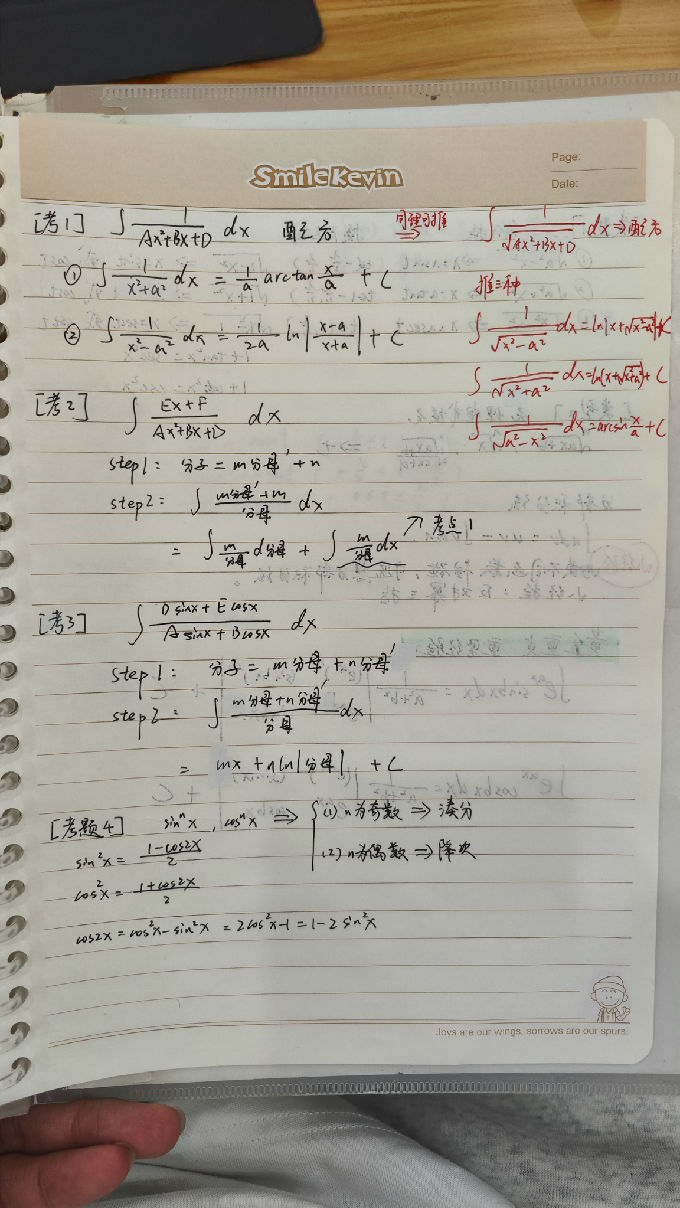 Smile Kevin
Page:
Date:
[考1] ∫ 1/(Ax²+Bx+D) dx 配方 同理可推 ⇒ ∫ 1/√(Ax²+Bx+D) dx ⇒ 配方
① ∫ 1/(x²+a²) dx = 1/a arctan x/a + C
推三种
② ∫ 1/(x²-a²) dx = 1/(2a) ln|(x-a)/(x+a)| + C
∫ 1/√(x²-a²) dx = ln|x+√(x²-a²)| + C
∫ 1/√(x²+a²) dx = ln(x+√(x²+a²)) + C
∫ 1/√(a²-x²) dx = arcsin x/a + C
[考2] ∫ (Ex+F)/(Ax²+Bx+D) dx
step1: 分子 = m分母' + n
step2: ∫ (m分母'+m)/分母 dx
= ∫ m/分母 d分母 + ∫ m/分母 dx ↗ 考点1
[考3] ∫ (Dsinx+Ecosx)/(Asinx+Bcosx) dx
step1: 分子 = m分母 + n分母'
step2: ∫ (m分母+n分母')/分母 dx
= mx + n ln|分母| + C
[考题4] sinⁿx , cosⁿx ⇒ { (1) n为奇数 ⇒ 凑分
(2) n为偶数 ⇒ 降次
sin²x = (1-cos2x)/2
cos²x = (1+cos2x)/2
cos2x = cos²x - sin²x = 2cos²x-1 = 1-2sin²x
Joys are our wings, sorrows are our spurs.